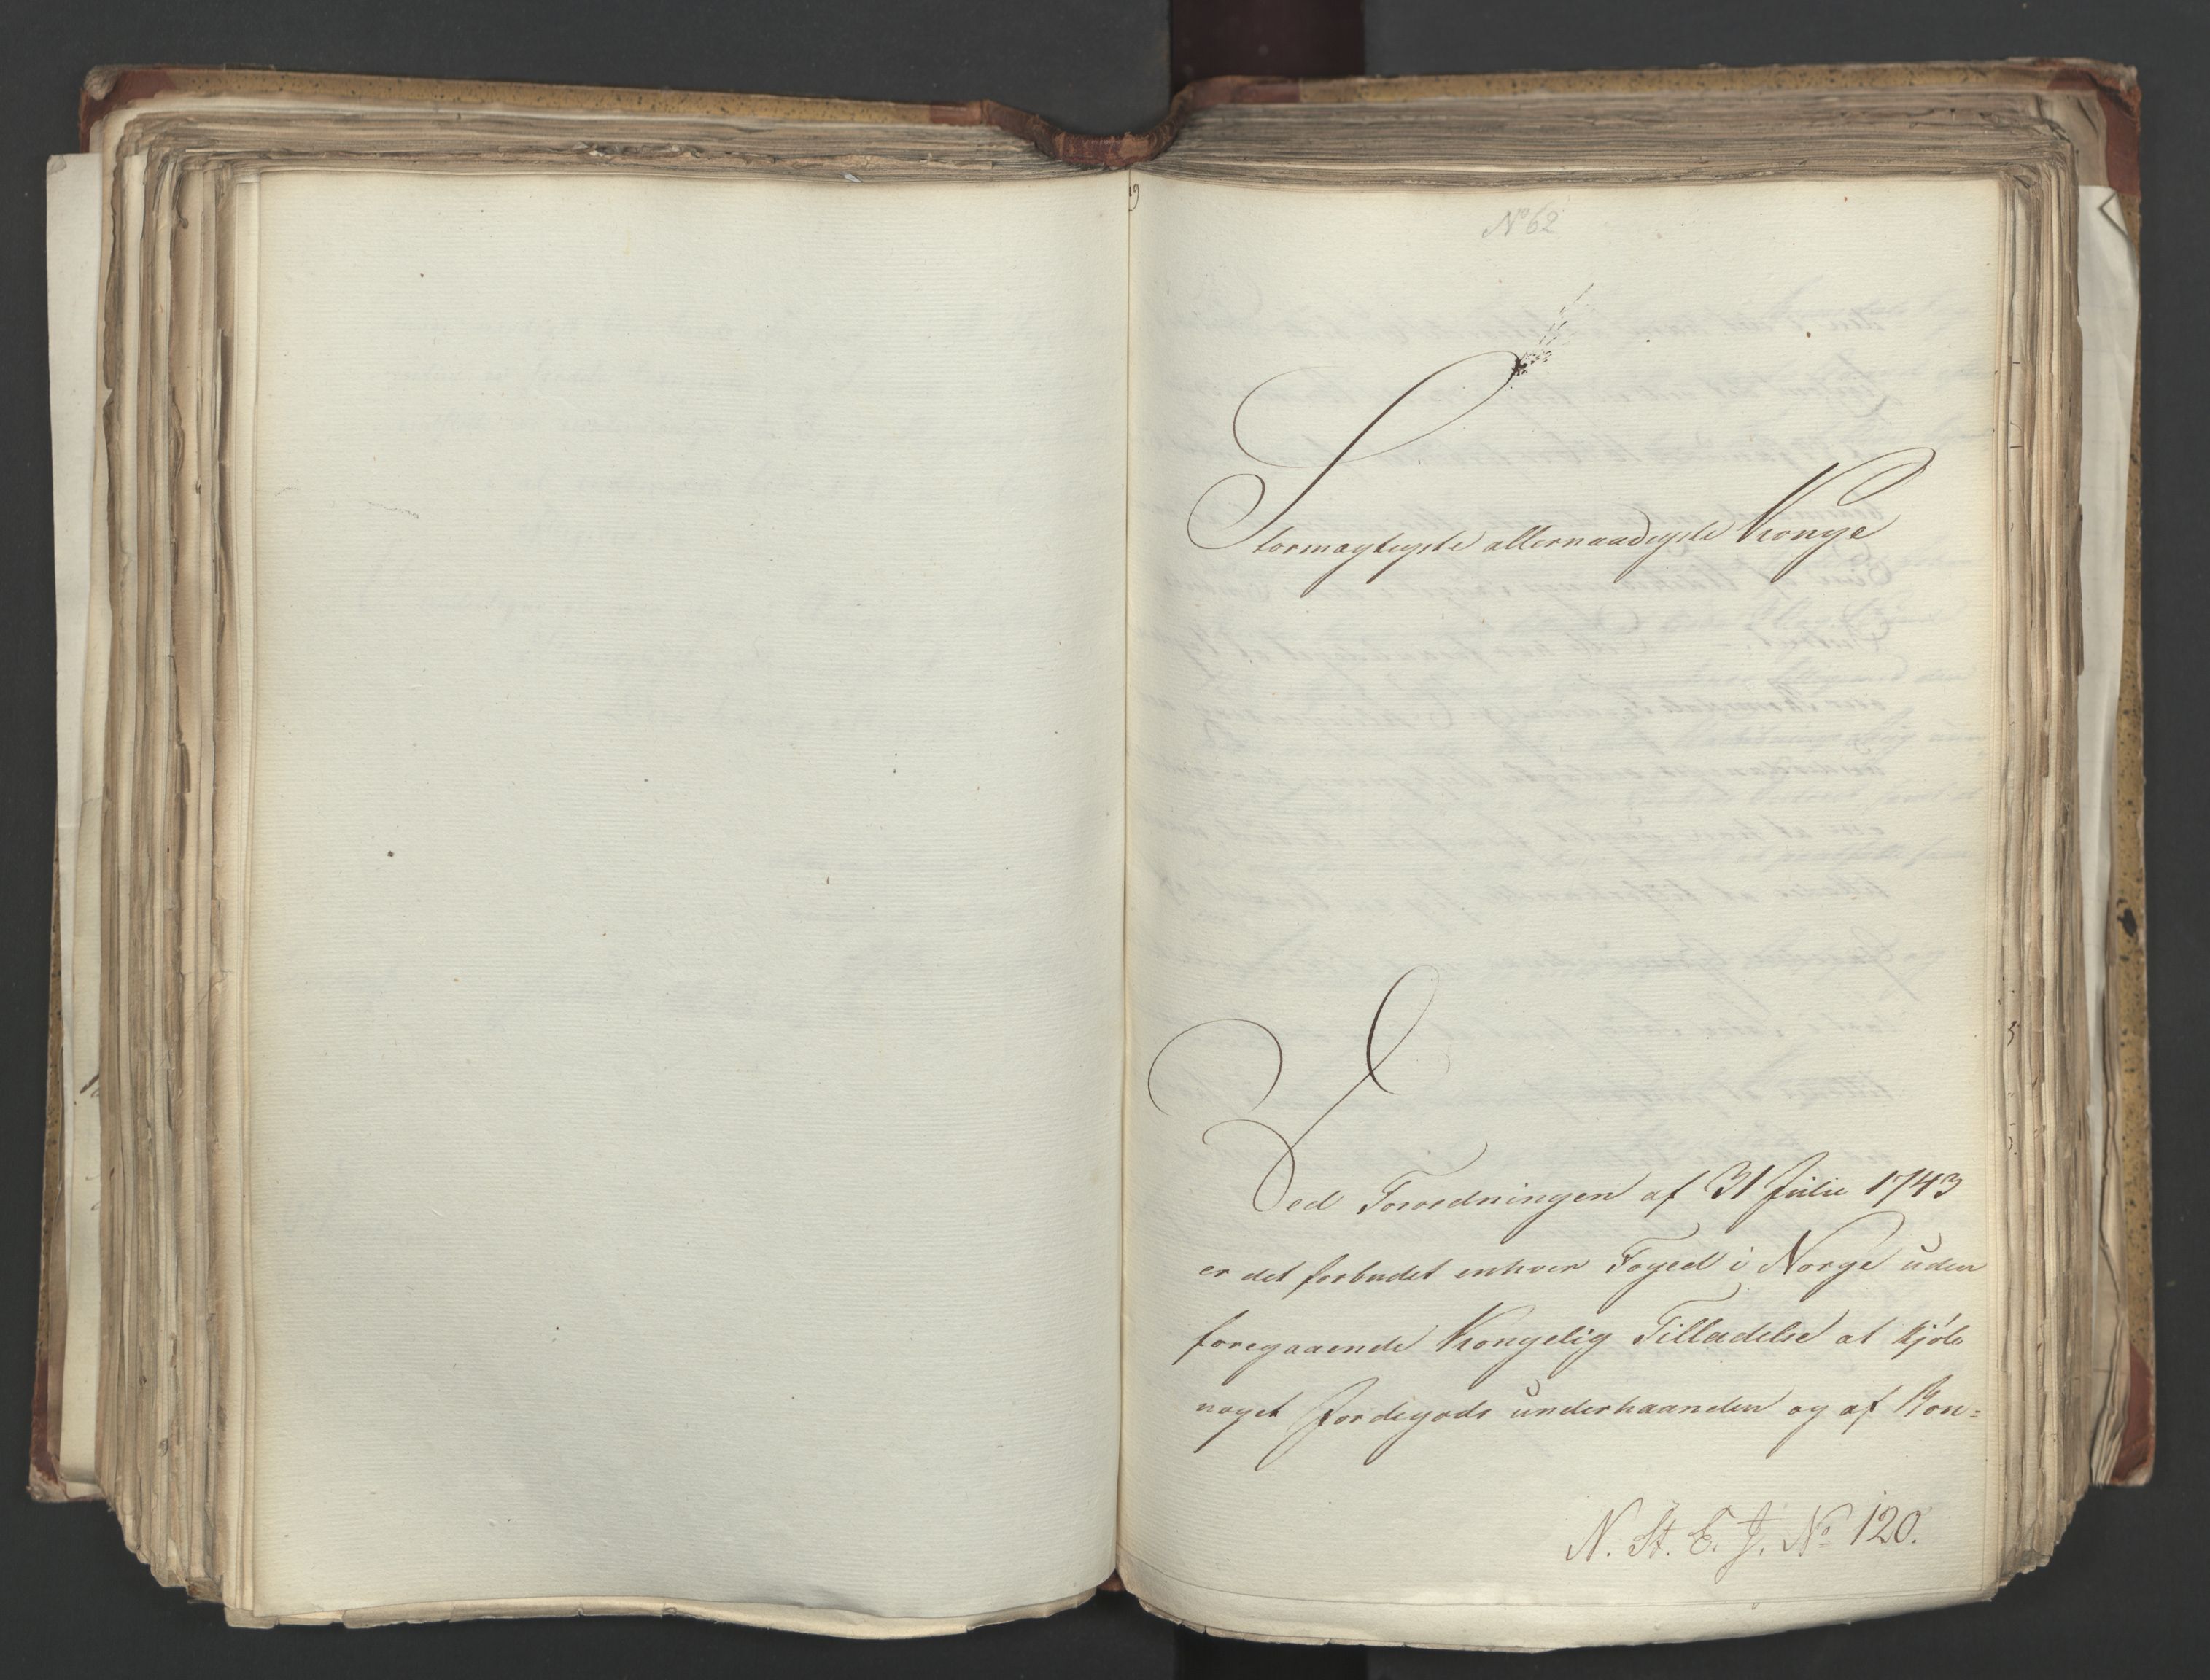 No 62
Stormægtigste allernaadigste Konge
Ved Forordningen af 31 Julii 1743
er det forbudet enhver Foged i Norge uden
foregaaende Kongelig Tilladelse at kjöbe
noget Jordegods underhaanden og af Kon=
N. St. E. J. No 120.